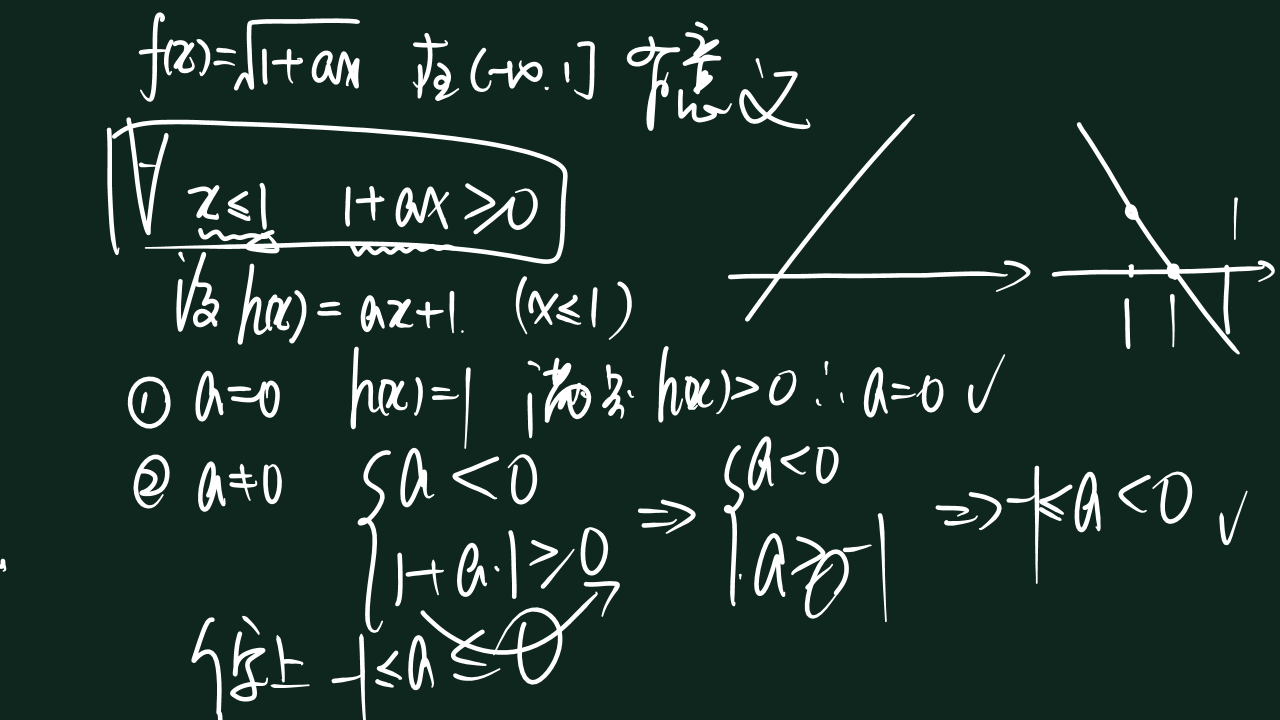 f(x)=√1+ax 在(-∞.1]有意义
∀ x≤1 1+ax≥0
设 h(x)=ax+1. (x≤1)
① a=0 h(x)=1 满足 h(x)>0 ∴ a=0 ✓
② a≠0 { a<0 ⇒ { a<0 ⇒ -1≤a<0 ✓
1+a·1≥0 a≥-1
综上 -1≤a≤0